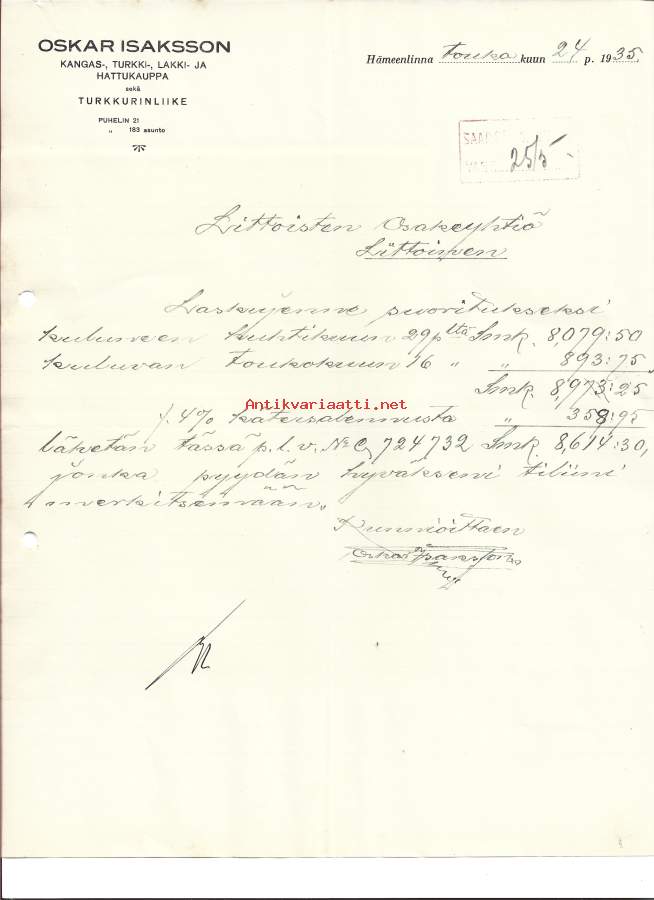 OSKAR ISAKSSON
KANGAS-, TURKKI-, LAKKI- JA
HATTUKAUPPA
sekä
TURKKURINLIIKE
PUHELIN 21
" 183 asunto
Hämeenlinna Touko kuun 24 p. 1935.
25/5 -
Littoisten Osakeyhtiö
Littoinen
Laskujenne suoritukseksi
kuluneen Huhtikuun 29 p:ltä Smk. 8,079:50
kuluvan Toukokuun 16 " " 893:75
Smk. 8,973:25
Antikvariaatti.net
4% kassa-alennusta " 358:95
lähetän tässä p. l. v. No 724732 Smk. 8,614:30,
jonka pyydän hyväkseni tiliini
merkitsemään.
Kunnioittaen
Oskar Isaksson